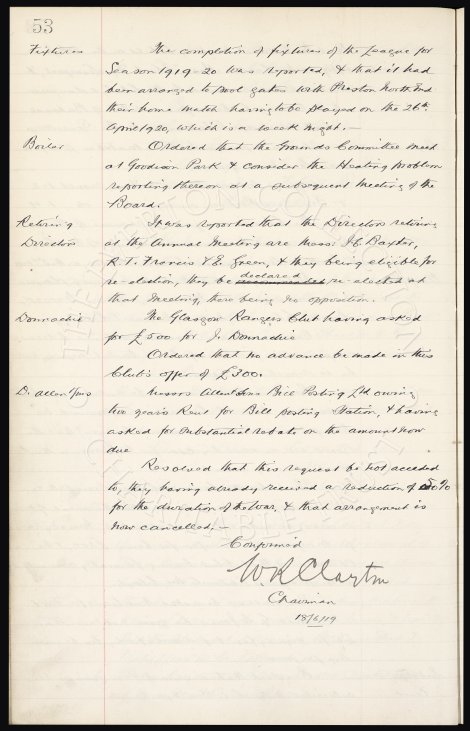 53
Fixtures The completion of fixtures of the League for
Season 1919-20 was reported, & that it had
been arranged to pool gates with Preston North End
their home match having to be played on the 26th
April 1920, which is a week night.—
Boiler Ordered that the Grounds Committee meet
at Goodison Park & consider the Heating problem
reporting thereon at a subsequent Meeting of the
Board.
Retiring It was reported that the Directors retiring
Directors at the Annual Meeting are Messrs Baxter,
R. T. Francis & E. Green, & they being eligible for
re-election, they be declared re-elected at
that Meeting, there being no opposition.
Donnachie The Glasgow Rangers Club having asked
for £500 for J. Donnachie
Ordered that no advance be made on this
Club's offer of £300.
D. Allen Sons Messrs Allen & Sons Bill Posting Ltd owing
two years Rent for Bill posting Station, & having
asked for substantial rebate on the amount now
due
Resolved that this request be not acceded
to, they having already received a reduction of 50%
for the duration of the war, & that arrangement is
now cancelled.—
Confirmed
W. R. Clayton
Chairman
18/6/19